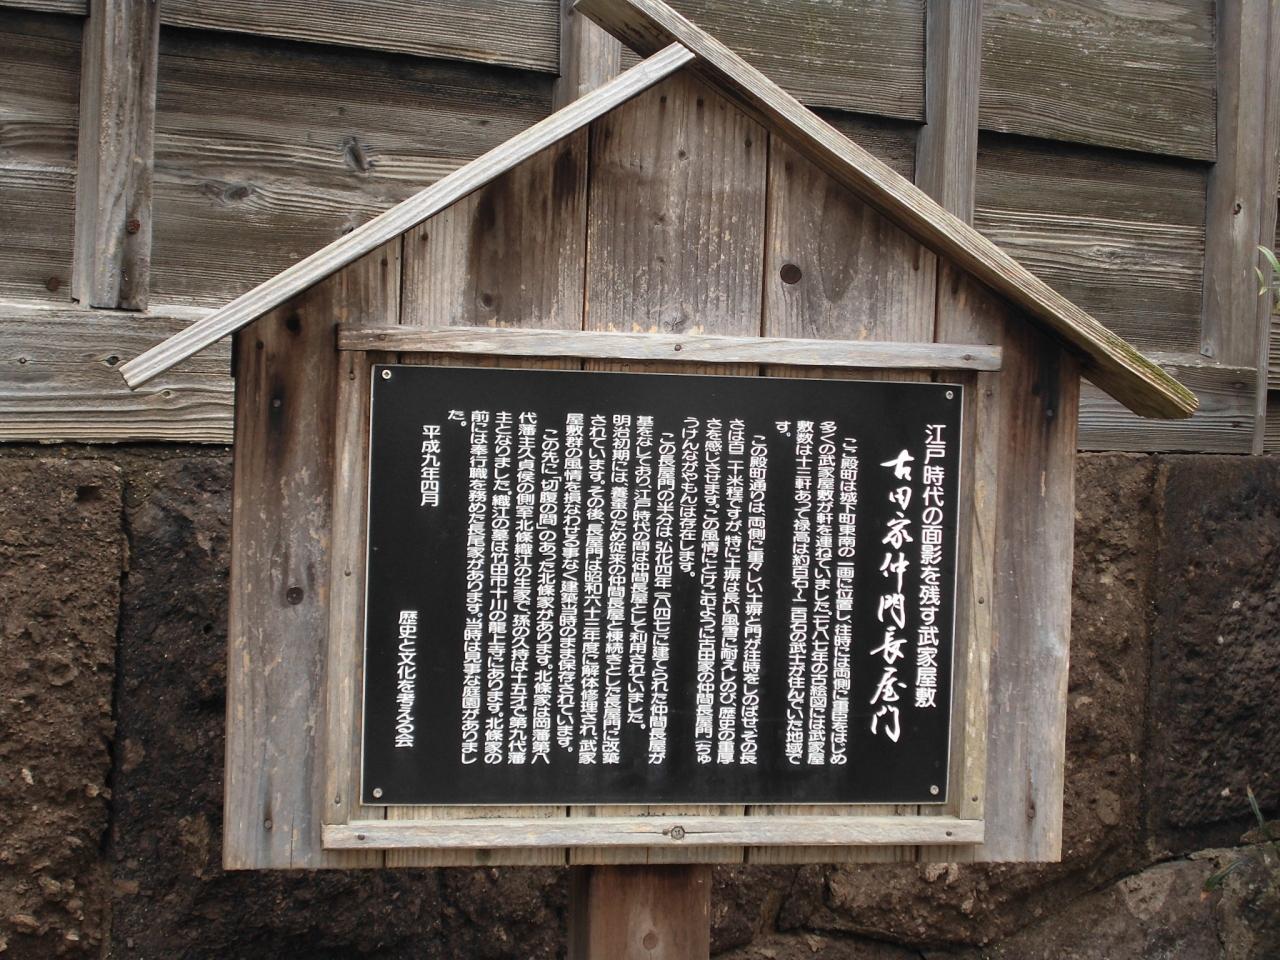 江戸時代の面影を残す武家屋敷
古田家仲間長屋門
ここ殿町は城下町東南の一画に位置し、往時には両側に重臣をはじめ
多くの武家屋敷が軒を連ねていました。一七八七年の古絵図には武家屋
敷数は十三軒あって禄高は約百石〜二百石の武士が住んでいた地域で
す。
この殿町通りは、両側に重々しい土塀と門が往時をしのばせ、その長
さは百二十米程ですが、特に土塀は長い風雪に耐えしのび、歴史の重厚
さを感じさせます。この風情にとけこむように古田家の仲間長屋門（ちゅ
うけんながやもんは存在します。
この長屋門の半分は、弘化四年（一八四七）に建てられた仲間長屋が
基をなしており、江戸時代の間は仲間長屋として利用されていました。
明治初期には、養蚕のため従来の仲間長屋と棟続きとした長屋門に改築
されています。その後、長屋門は昭和六十三年度に解体修理され、武家
屋敷群の風情を損なわせる事なく建築当時のまま保存されています。
この先に「切腹の間」のあった北條家があります。北條家は岡藩第八
代藩主久貞侯の側室北條織江の生家で、孫の久持は十五才で第九代藩
主となりました。織江の墓は竹田市十川の龍上寺にあります。北條家の
前には奉行職を務めた長尾家があります。当時は見事な庭園がありまし
た。
平成九年四月
歴史と文化を考える会